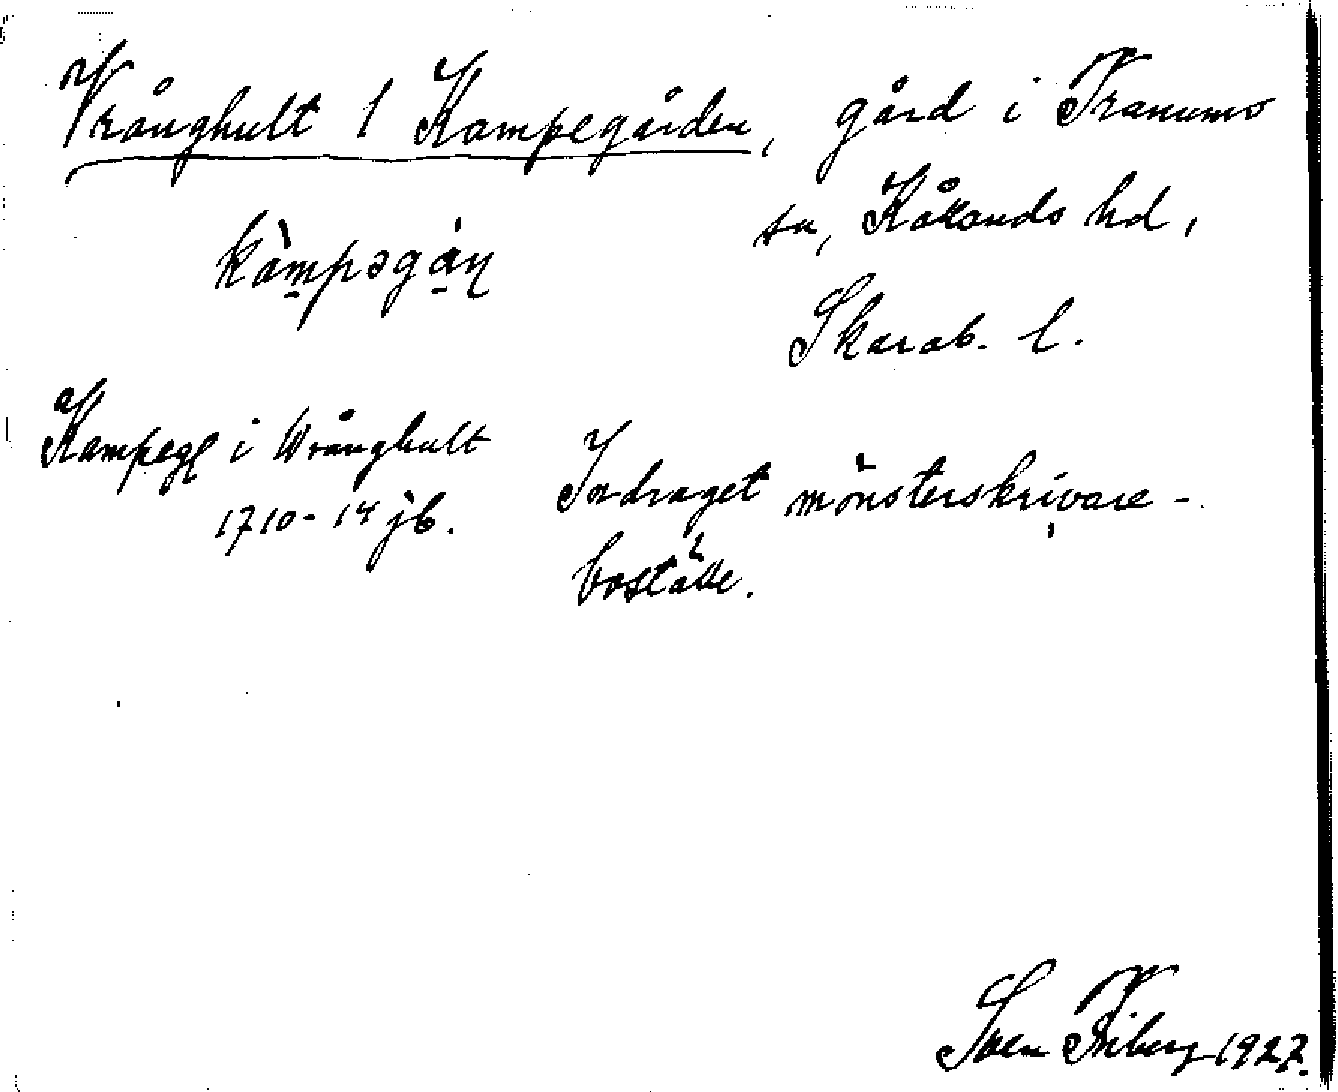 Vrånghult 1 Kampegården, gård i Tranums
sn, Kållands hd,
kàmpəgáɳ
Skarab. l.
Kampeg. i Wrånghult
1710-14 jb.
Indraget mönsterskrivare-
boställe.
Sven Friberg 1927.